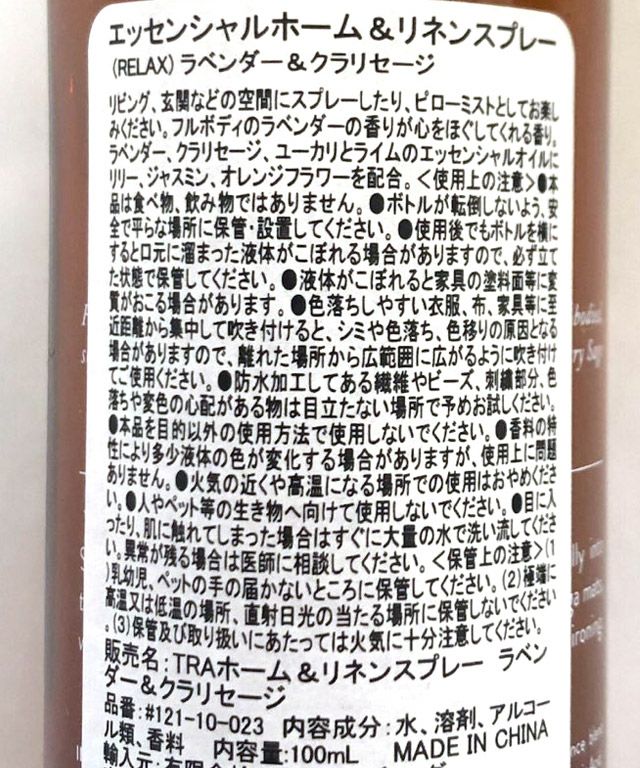 エッセンシャルホーム&リネンスプレー
(RELAX) ラベンダー&クラリセージ
リビング、玄関などの空間にスプレーしたり、ピローミストとしてお楽し
みください。フルボディのラベンダーの香りが心をほぐしてくれる香り。
ラベンダー、クラリセージ、ユーカリとライムのエッセンシャルオイルに
リリー、ジャスミン、オレンジフラワーを配合。<使用上の注意>●本
品は食べ物、飲み物ではありません。●ボトルが転倒しないよう、安
全で平らな場所に保管・設置してください。●使用後でもボトルを横に
すると口元に溜まった液体がこぼれる場合がありますので、必ず立て
た状態で保管してください。●液体がこぼれると家具の塗料面等に変
質がおこる場合があります。●色落ちしやすい衣服、布、家具等に至
近距離から集中して吹き付けると、シミや色落ち、色移りの原因となる
場合がありますので、離れた場所から広範囲に広がるように吹き付け
てご使用ください。●防水加工してある繊維やビーズ、刺繍部分、色
落ちや変色の心配がある物は目立たない場所で予めお試しください。
●本品を目的以外の使用方法で使用しないでください。●香料の特
性により多少液体の色が変化する場合がありますが、使用上に問題
ありません。●火気の近くや高温になる場所での使用はおやめくださ
い。●人やペット等の生き物へ向けて使用しないでください。●目に入
ったり、肌に触れてしまった場合はすぐに大量の水で洗い流してくださ
い。異常が残る場合は医師に相談してください。<保管上の注意>(1
)乳幼児、ペットの手の届かないところに保管してください。(2)極端に
高温又は低温の場所、直射日光の当たる場所に保管しないでください
。(3)保管及び取り扱いにあたっては火気に十分注意してください。
販売名:TRAホーム&リネンスプレー ラベン
ダー&クラリセージ
品番:#121-10-023 内容成分:水、溶剤、アルコー
ル類、香料 内容量:100mL MADE IN CHINA
輸入元:有限会